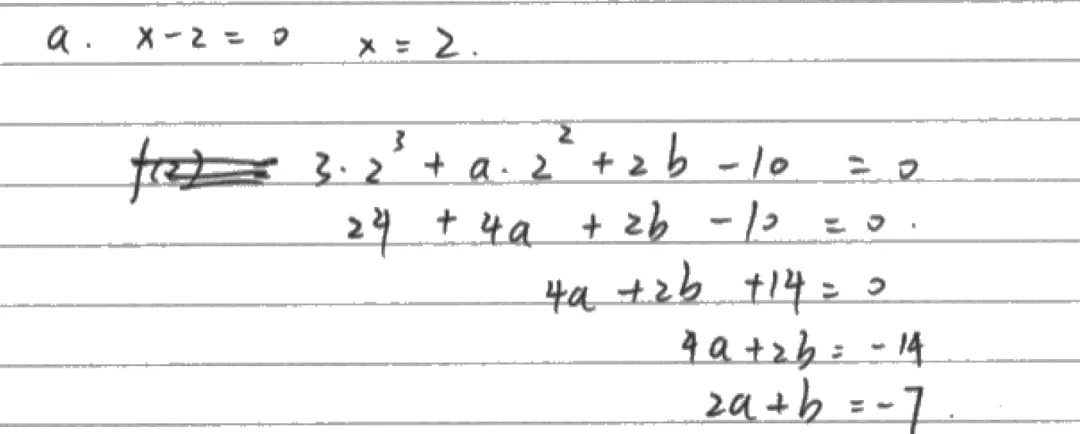 a. x-2=0 x=2.
3·2³+a·2²+2b-10=0
24+4a+2b-10=0.
4a+2b+14=0
4a+2b=-14
2a+b=-7.